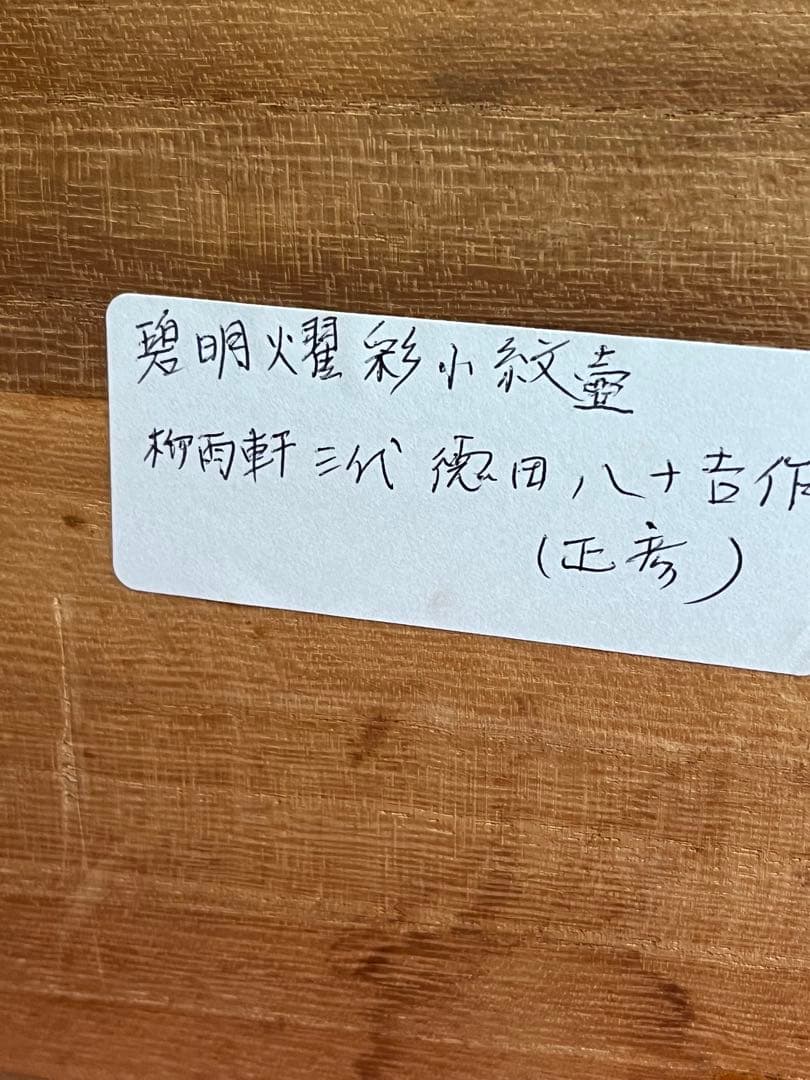 碧明燿彩小紋壺
柳雨軒 三代 徳田八十吉作
(正彦)